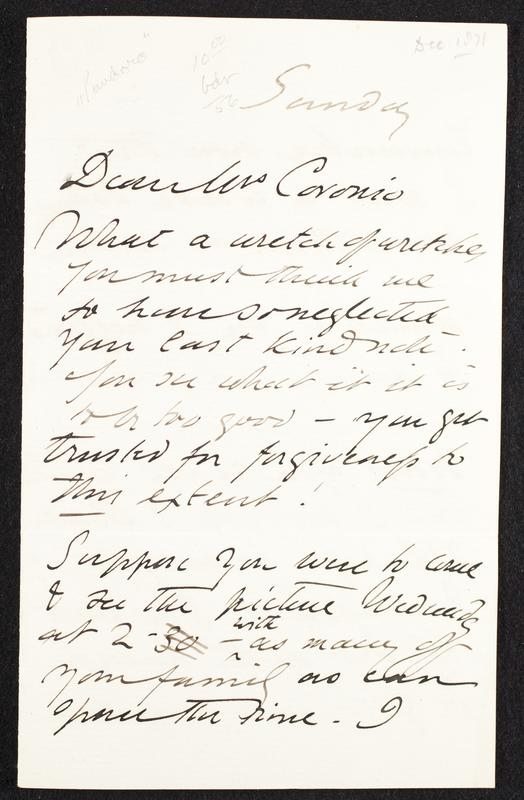 "Pandora"
10.00
Dec 1871
Sunday
Dear Mrs Coronio
What a wretch of wretches
you must think me
to have so neglected
your last kind note -.
You see what it is
to be too good - you get
trusted for forgiveness to
this extent!
Suppose you were to come
& see the picture Wednesday
at 2-30 - with as many of
your family as can
spare the time. - I